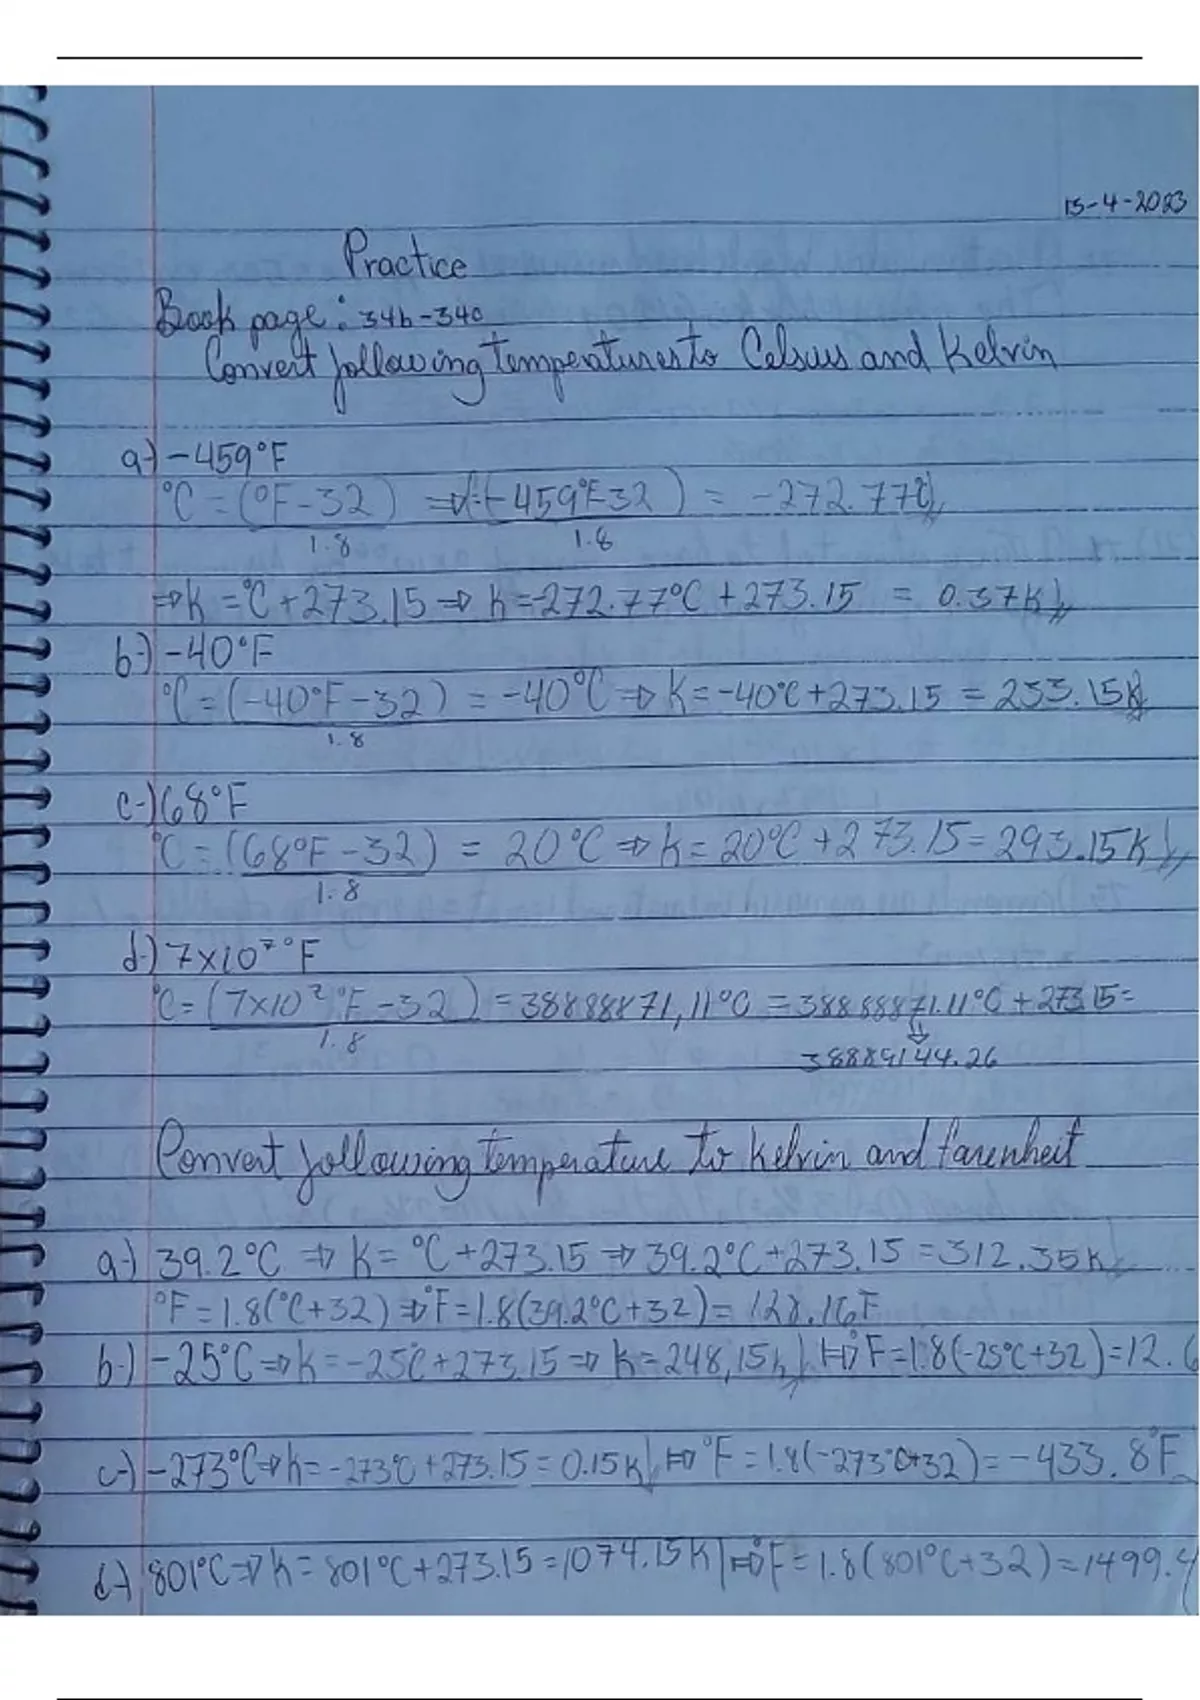 15-4-2023
Practice
Book page: 34b-34c
Convert following temperatures to Celsius and Kelvin
a-) -459°F
°C = (°F-32) ⇒ (-459°F-32) = -272.77°C
1.8 1.8
⇒ K = °C + 273.15 ⇒ K = -272.77°C + 273.15 = 0.37K
b-) -40°F
°C = (-40°F-32) = -40°C ⇒ K = -40°C + 273.15 = 233.15K
1.8
c-) 68°F
°C = (68°F-32) = 20°C ⇒ K = 20°C + 273.15 = 293.15K
1.8
d-) 7x10⁷°F
°C = (7x10⁷°F-32) = 38888871,11°C = 38888871.11°C + 273.15 =
1.8 ⇓
38889144.26
Convert following temperature to Kelvin and farenheit
a-) 39.2°C ⇒ K = °C + 273.15 ⇒ 39.2°C + 273.15 = 312.35K
°F = 1.8(°C+32) ⇒ °F = 1.8(39.2°C+32) = 128.16F
b-) -25°C ⇒ K = -25°C + 273.15 ⇒ K = 248,15K ⇒ °F = 1.8(-25°C+32) = 12.6
c-) -273°C ⇒ K = -273°C + 273.15 = 0.15K ⇒ °F = 1.8(-273°C+32) = -433.8°F
d-) 801°C ⇒ K = 801°C + 273.15 = 1074.15K ⇒ °F = 1.8(801°C+32) = 1499.4